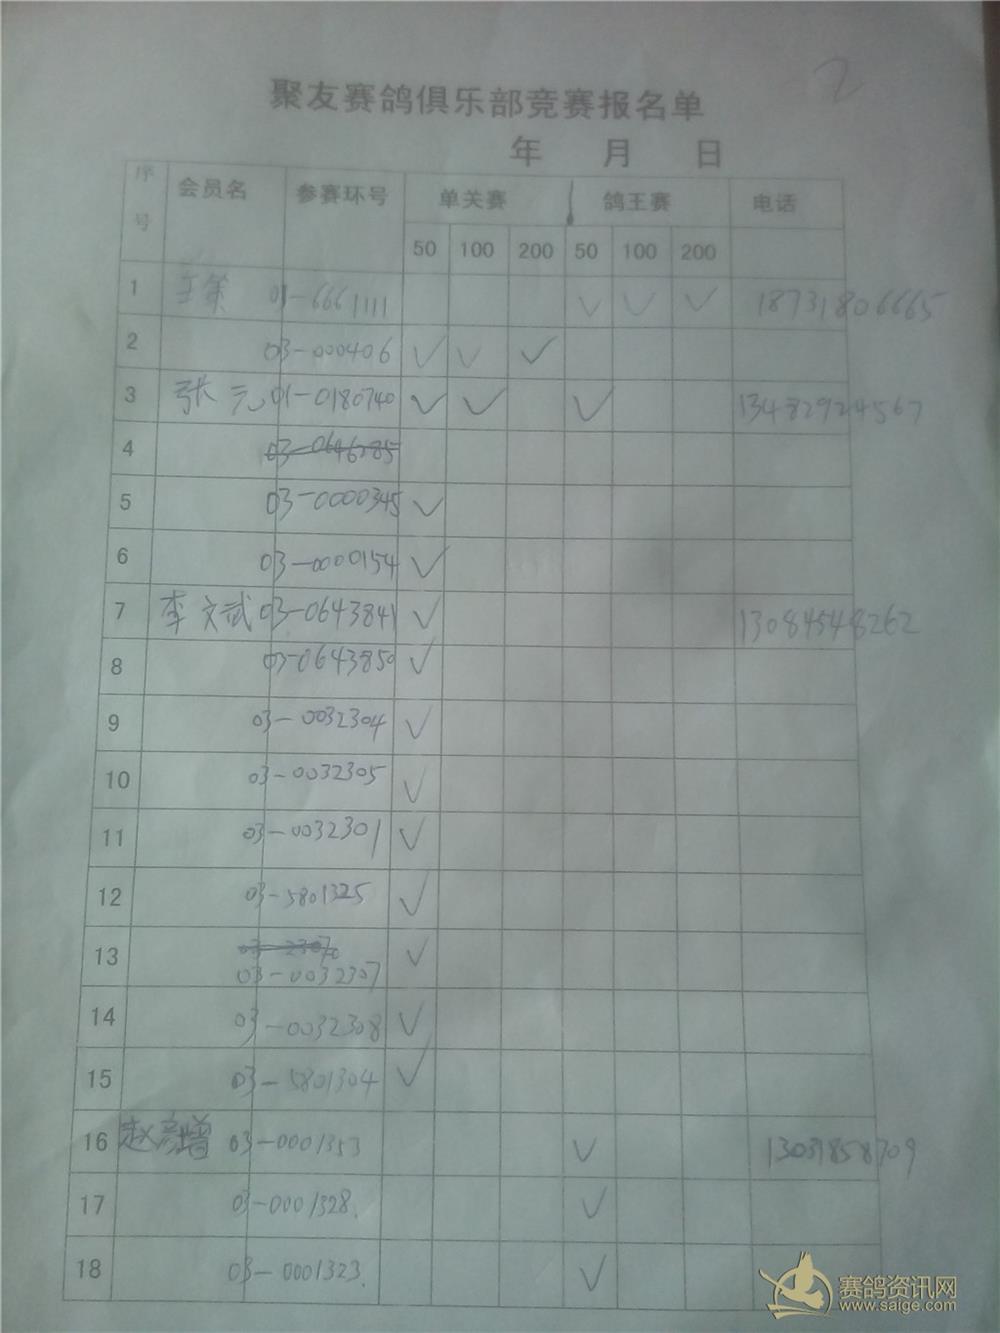 2
聚友赛鸽俱乐部竞赛报名单
年 月 日
序号 会员名 参赛环号 单关赛 鸽王赛 电话
50 100 200 50 100 200
1 01-6661111 ✓ ✓ ✓ 18731806665
2 03-000406 ✓ ✓ ✓
3 张元 01-0180740 ✓ ✓ ✓ 13482924567
4 03-0646285
5 03-0000345 ✓
6 03-0000154 ✓
7 李文斌 03-0643841 ✓ 13084548262
8 03-0643850 ✓
9 03-0032304 ✓
10 03-0032305 ✓
11 03-0032301 ✓
12 03-5801325 ✓
13 ✓
03-0032307
14 03-0032308 ✓
15 03-5801304 ✓
16 赵彦增 03-0001353 ✓ 13031858709
17 03-0001328. ✓
18 03-0001323. ✓
赛鸽资讯网
www.saige.com